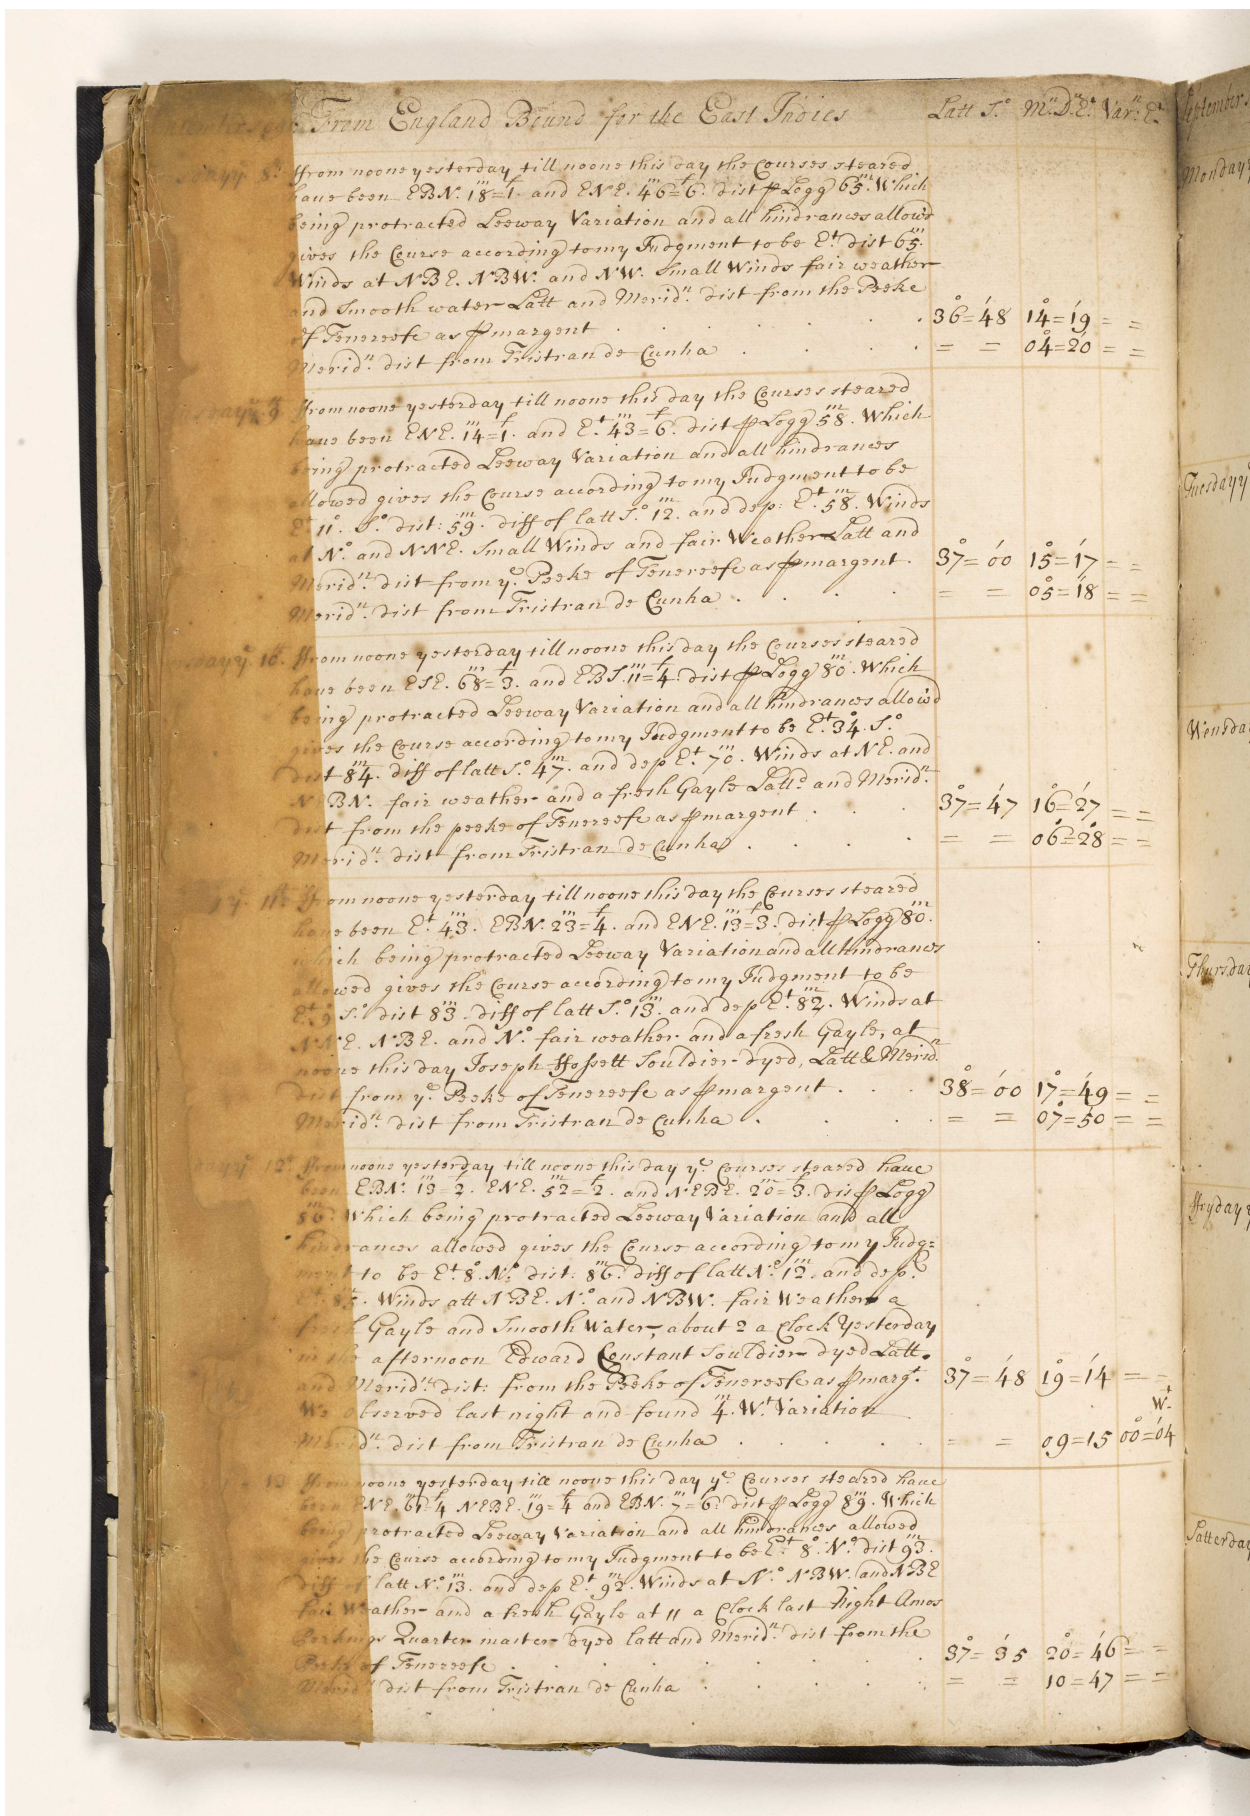 From England Bound for the East Indies Latt S.º M.ⁿ D.ⁿ E.ᵗ Var.ⁿ E.ᵗ
8.ᵗ ffrom noone yesterday till noone this day the Courses steared
have been EBN. 18=1. and ENE. 46=6. dist ⅌ Logg 65.ᵐ Which
being protracted Leeway Variation and all hindrances allow'd
gives the Course according to my Judgment to be E.ᵗ dist 65.ᵐ
Winds at NBE. NBW. and NW. Small Winds fair weather
and Smooth water Latt and Merid.ⁿ dist from the Peeke
of Tenereefe as ⅌ margent . . . . . . 36=48 14=19 = =
Merid.ⁿ dist from Tristran de Cunha . . . = = 04=20 = =
9 ffrom noone yesterday till noone this day the Courses steared
have been ENE. 14=1. and E.ᵗ 43=6. dist ⅌ Logg 58.ᵐ Which
being protracted Leeway Variation and all hindrances
allowed gives the Course according to my Judgment to be
E.ᵗ 11º. S.º dist: 59. diff of latt S.º 12. and dep: E.ᵗ 58. Winds
at N.º and NNE. Small Winds and fair Weather Latt and
Merid.ⁿ dist from y.ᵉ Peeke of Tenereefe as ⅌ margent. 37=00 15=17 = =
Merid.ⁿ dist from Tristran de Cunha . . . . = = 05=18 = =
10.ᵗ ffrom noone yesterday till noone this day the Courses steared
have been ESE. 68=3. and EBS. 11=4. dist ⅌ Logg 80.ᵐ Which
being protracted Leeway Variation and all hindrances allow'd
gives the Course according to my Judgment to be E.ᵗ 34. S.º
dist 84. diff of latt S.º 47. and dep E.ᵗ 70. Winds at NE. and
NEBN. fair weather and a fresh Gayle Latt.ᵈ and Merid.ⁿ
dist from the peeke of Tenereefe as ⅌ margent . . . 37=47 16=27 = =
Merid.ⁿ dist from Tristran de Cunha . . . . = = 06=28 = =
11.ᵗ ffrom noone yesterday till noone this day the Courses steared
have been E.ᵗ 43. EBN. 23=4. and ENE. 13=3. dist ⅌ Logg 80.ᵐ
which being protracted Leeway Variation and all hindrances
allowed gives the Course according to my Judgment to be
E.ᵗ 9 S.º dist 83. diff of latt S.º 13. and dep E.ᵗ 82. Winds at
NNE. NBE. and N.º fair weather and a fresh Gayle, at
noone this day Joseph Souldier dyed, Latt & Merid.ⁿ
dist from y.ᵉ Peeke of Tenereefe as ⅌ margent . . . 38=00 17=49 = =
Merid.ⁿ dist from Tristran de Cunha . . . = = 07=50 = =
12.ᵗ ffrom noone yesterday till noone this day y.ᵉ Courses steared have
been EBN. 13=2. ENE. 52=2. and NEBE. 20=3. dis ⅌ Logg
86. Which being protracted Leeway Variation and all
hindrances allowed gives the Course according to my Judg=
ment to be E.ᵗ 8. N.º dist: 86. diff of latt N.º 12. and dep.
E.ᵗ 85. Winds att NBE. N.º and NBW. fair Weather a
fresh Gayle and Smooth Water, about 2 a Clock Yesterday
in the afternoon Edward Constant Souldier dyed Latt.
and Merid.ⁿ dist: from the Peeke of Tenereefe as ⅌ marg.ᵗ 37=48 19=14 = =
We observed last night and found 4. W.ᵗ Variation W.ᵗ
Merid.ⁿ dist from Tristran de Cunha . . . . . = = 09=15 00=04
13 ffrom noone yesterday till noone this day y.ᵉ Courses steared have
been ENE. 61=4 NEBE. 19=4 and EBN. 7=6. dist ⅌ Logg 89. Which
being protracted Leeway Variation and all hindrances allowed
gives the Course according to my Judgment to be E.ᵗ 8. N.º dist 93.
diff of latt N.º 13. and dep E.ᵗ 92. Winds at N.º NBW. and NBE
fair Weather and a fresh Gayle at 11 a Clock last Night Amos
Perkings Quarter master dyed latt and Merid.ⁿ dist from the
Peeke of Tenereefe . . . . . . 37=35 20=46 = =
Merid.ⁿ dist from Tristran de Cunha . . . . . = = 10=47 = =
September
Monday
Tuesday y
Wensday
Thursday
ffryday y
Satterday